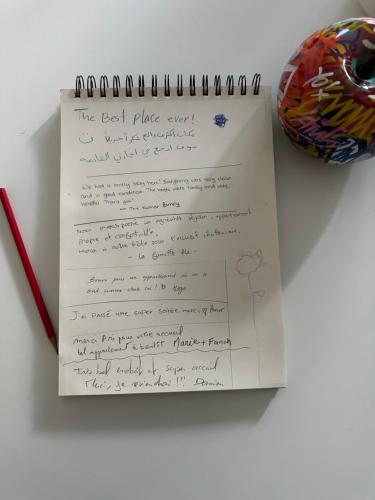 The Best place ever!
مكان أكثر من رائع شكرا جزيلا
سوف ارجع في اجازتي القادمة
We had a lovely stay here! Everything was very clean
and in good condition. The hosts were lovely and very
helpful. Thank you!
- The Kumar family
Nous avons passé un agréable séjour, appartement
propre et confortable.
Merci à notre hôte pour l'accueil
- La famille
Bravo pour un appartement
and comme chez soi!
J'ai passé une super soirée merci
merci pour votre accueil
bel appartement à bientôt Marie +
Très bel endroit et super accueil
Merci, je reviendrai !!!